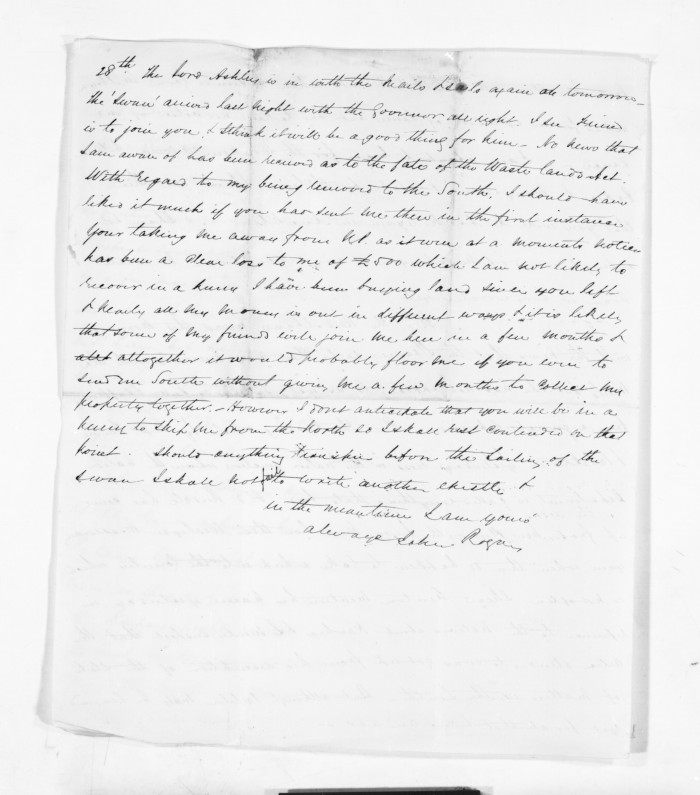 28th The Lord Ashley is in with the Mails & sails again at tomorrow -
the 'Swan' arrived last night with the Governor all right. I see
is to join you & I think it will be a good thing for him - No news that
I am aware of has been received as to the fate of the Waste lands Act.
With regard to my being removed to the South, I should have
liked it much if you had sent me there in the first instance
Your taking me away from N.P. as it were at a moments notice
has been a clear loss to me of £500 which I am not likely to
recover in a hurry I have been buying land since you left
& nearly all my money is out in different ways & it is likely
that some of my friends will join me here in a few months &
altogether it would probably floor me if you were to
send me South without giving me a few months to collect my
property together. - However I dont anticipate that you will be in a
hurry to ship me from the North so I shall rest contented on that
point. Should anything transpire before the sailing of the
Swan I shall not fail to write another epistle &
in the meantime I am yours
always John Rogan